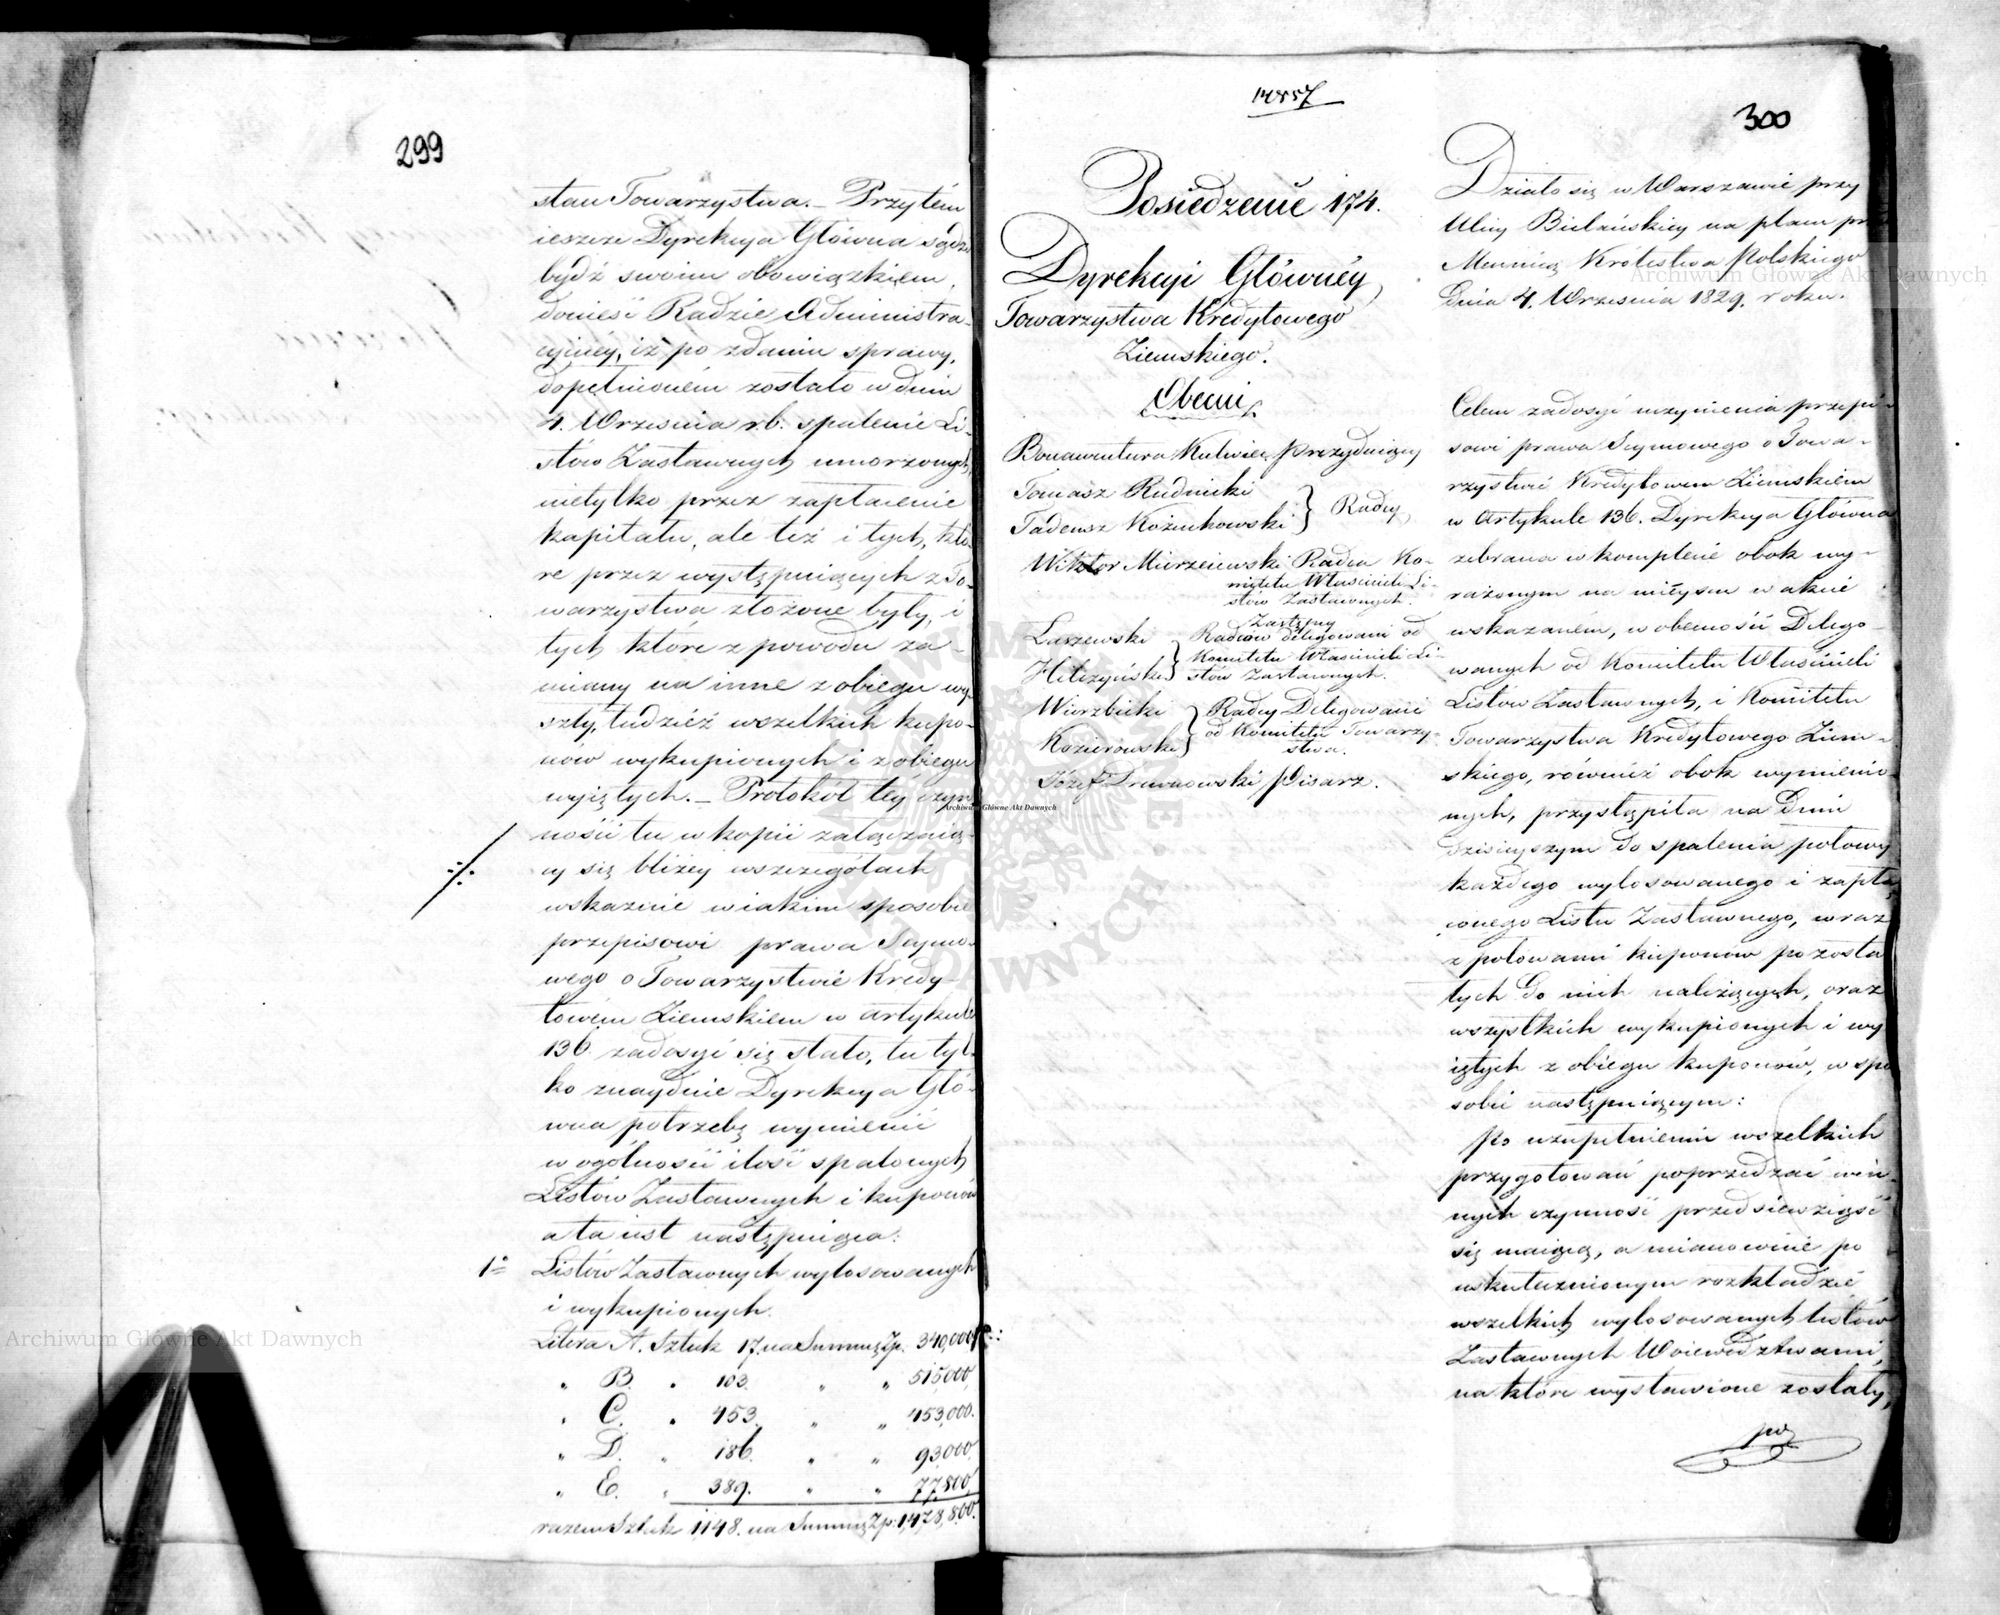 299
stan Towarzystwa. – Przytém
ieszcze Dyrekcya Główna sądzi
bydź swoim obowiązkiem,
donieść Radzie Administra-
cyjnéy, iż po zdaniu sprawy,
dopełnioném zostało w dniu
4. Września r.b. spalenie Li-
stów Zastawnych umorzonych,
nietylko przez zapłacenie
kapitału, ale też i tych, któ-
re przez występuiących z To-
warzystwa złożone były, i
tych które z powodu za-
miany na inne z obiegu wy-
szły, tudzież wszelkich kupo-
nów wykupionych i z obiegu
wyiętych. – Protokół téy czyn
ności tu w kopii załączaią-
cy się bliżey w szczegółach
wskazuie w iakim sposobie
przepisowi prawa Seymo-
wego o Towarzystwie Kredy-
towém Ziemskiem w artykule
136. zadosyć się stało, tu tyl-
ko znayduie Dyrekcya Głó-
wna potrzebę wymienić
w ogólności ilość spalonych
Listów Zastawnych i kuponów
a ta iest następuiąca:
1° Listów Zastawnych wylosowanych
i wykupionych.
Litera A. Sztuk 17. na Summę Zp. 340,000
" B. " 103. " " 515,000
" C. " 453. " " 453,000.
" D. " 186. " " 93,000
" E. " 389. " " 77,800
razem Sztuk 1148. na Summę Zp. 1,478,800.
300
Posiedzenie 174.
Dyrekcyi Głównéy,
Towarzystwa Kredytowego
Ziemskiego.
Obecni
Bonawentura Kulwiec Prezyduiący
Tomasz Rudnicki
Tadeusz Kożuchowski } Radcy
Wiktor Mierzeiewski Radca Ko-
mitetu Właścicieli Li-
stów Zastawnych.
Laszewski
Hilczyński } Zastępcy
Radców delegowani od
Komitetu Właścicieli Li-
stów Zastawnych.
Wierzbicki
Kozierowski } Radcy Delegowani
od Komitetu Towarzy-
stwa.
Józef Drewnowski Pisarz.
Działo się w Warszawie przy
Ulicy Bielańskiey na placu
Mennicą Królestwa Polskiego
Dnia 4. Września 1829. roku.
Celem zadosyć uczynienia przepi-
sowi prawa Seymowego o Towa-
rzystwie Kredytowem Ziemskiem
w Artykule 136. Dyrekcya Główna
zebrana w komplecie obok wy-
rażonym na mieyscu w akcie
wskazanem, w obecności Delego-
wanych od Komitetu Właścicieli
Listów Zastawnych, i Komitetu
Towarzystwa Kredytowego Ziem-
skiego, również obok wymienio-
nych, przystąpiła na Dniu
dzisieyszym do spalenia połowy
każdego wylosowanego i zapła-
conego Listu Zastawnego, wraz
z połowami kuponów pozosta
łych do nich należących, oraz
wszystkich wykupionych i wy
iętych z obiegu kuponów, w spo
sobie następuiącym:
Po uzupełnieniu wszelkich
przygotowań poprzedzać win-
nych czynność przedsiewziąść
się maiącą, a mianowicie po
uskutecznionym rozkładzie
wszelkich wylosowanych listów
Zastawnych Woiewództwami,
na które wystawione zostały,